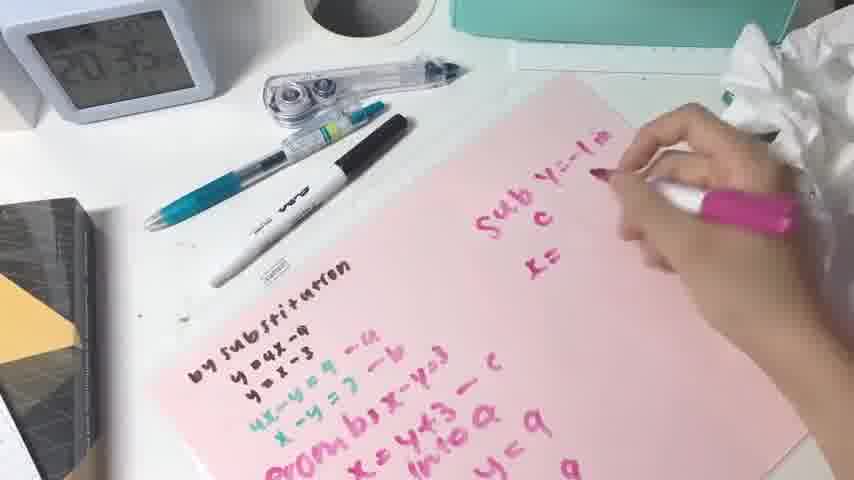 20:35
by substitution
y = 4x - 9
y = x - 3
4x - y = 9 - a
x - y = 3 - b
from b: x - y = 3
x = y + 3 - c
into a
y = 9
9
sub y = -1 in
c
x =